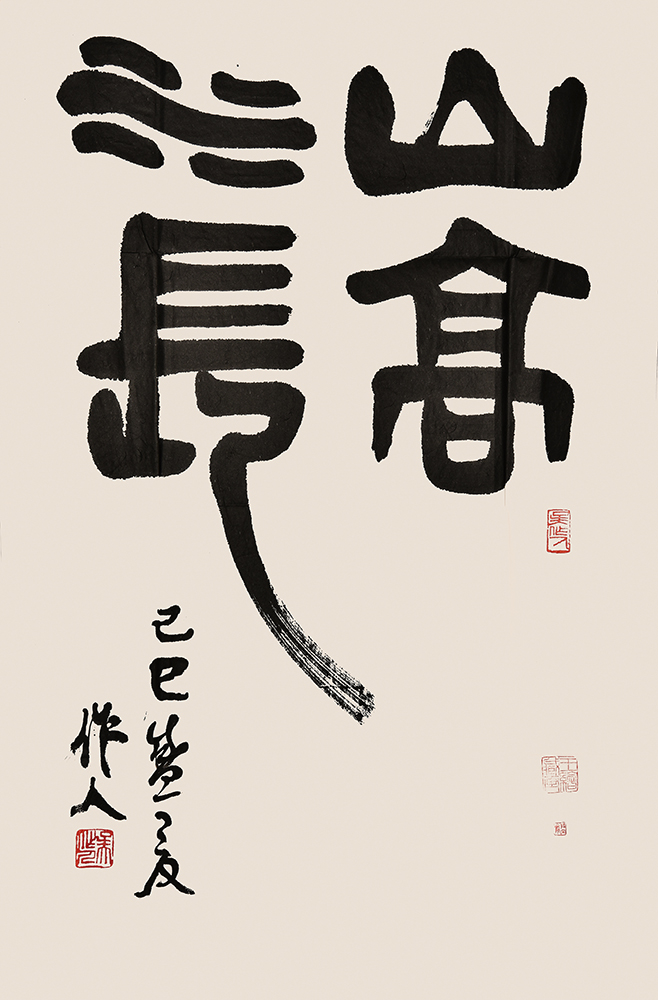 山高
水長
己巳盛夏
作人